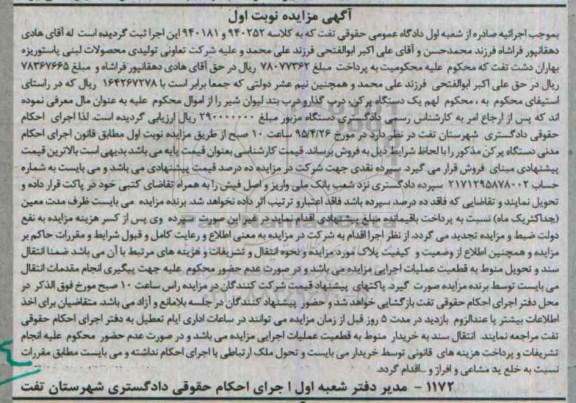 آگهی مزایده نوبت اول
بموجب اجرائیه صادره از شعبه اول دادگاه عمومی حقوقی تفت که به کلاسه ۹۴۰۲۵۲ و ۹۴۰۱۸۱ این اجرا ثبت گردیده است له آقای هادی
دهقانپور فراشاه فرزند محمدحسن و آقای علی اکبر ابوالفتحی فرزند علی محمد و علیه شرکت تعاونی تولیدی محصولات لبنی پاستوریزه
بهاران دشت تفت که محکوم علیه محکومیت به پرداخت مبلغ ۷۸۰۷۷۳۶۲ ریال در حق آقای هادی دهقانپور فراشاه و مبلغ ۷۸۳۶۷۶۶۵
ریال در حق علی اکبر ابوالفتحی فرزند علی محمد و همچنین نیم عشر دولتی که جمعا برابر است با ۱۶۴۲۶۷۲۷۸ ریال که در راستای
استیفای محکوم به ، محکوم لهم یک دستگاه پرکن، درب گذار و درب بند لیوان شیر را از اموال محکوم علیه به عنوان مال معرفی نموده
اند که پس از ارجاع امر به کارشناس رسمی دادگستری دستگاه مزبور مبلغ ۲۹۰۰۰۰۰۰۰ ریال ارزیابی گردیده است. لذا اجرای احکام
حقوقی دادگستری شهرستان تفت در نظر دارد در مورخ ۹۵/۴/۲۶ ساعت ۱۰ صبح از طریق مزایده نوبت اول مطابق قانون اجرای احکام
مدنی دستگاه پرکن مذکور را با لحاظ شرایط ذیل به فروش برساند. قیمت کارشناسی بعنوان قیمت پایه می باشد بدیهی است بالاترین قیمت
پیشنهادی مبنای فروش قرار می گیرد. سپرده نقدی جهت شرکت در مزایده ده درصد قیمت پیشنهادی می باشد و می بایست به شماره
حساب ۲۱۷۱۲۹۵۸۷۸۰۰۲ سپرده دادگستری نزد شعب بانک ملی واریز و اصل فیش را به همراه تقاضای کتبی خود در پاکت قرار داده و
تحویل نمایند و تقاضایی که فاقد ده درصد سپرده باشد فاقد اعتبار و ترتیب اثر داده نخواهد شد. برنده مزایده می بایست ظرف مدت معین
(حداکثر یک ماه) نسبت به پرداخت باقیمانده مبلغ پیشنهادی اقدام نماید در غیر این صورت سپرده وی پس از کسر هزینه مزایده به نفع
دولت ضبط و مزایده تجدید می گردد. از نظر اجرا اقدام به شرکت در مزایده به معنی اطلاع و رعایت کامل و قبول شرایط و مقررات حاکم بر
مزایده و همچنین اطلاع از وضعیت و کیفیت پلاک مورد مزایده و نحوه انتقال و تشریفات و هزینه های مرتبط با آن می باشد ضمنا انتقال
سند و تحویل منوط به قطعیت عملیات اجرایی مزایده می باشد و در صورت عدم حضور محکوم علیه جهت پیگیری انجام مقدمات انتقال
می بایست توسط برنده مزایده صورت گیرد. پاکتهای پیشنهاد قیمت شرکت کنندگان در مزایده راس ساعت ۱۰ صبح مورخ فوق الذکر در
محل دفتر اجرای احکام حقوقی تفت بازگشایی خواهد شد و حضور پیشنهاد کنندگان در جلسه بلامانع و آزاد می باشد. متقاضیان برای اخذ
اطلاعات بیشتر یا عندالزوم بازدید در مدت ۵ روز قبل از زمان مزایده می توانند در ساعات اداری ایام تعطیل به دفتر اجرای احکام حقوقی
تفت مراجعه نمایند. انتقال سند به خریدار منوط به قطعیت عملیات اجرایی مزایده می باشد و در صورت عدم حضور محکوم علیه انجام
تشریفات و پرداخت هزینه های قانونی توسط خریدار می بایست و تحول ملک ارتباطی با اجرای احکام نداشته و می بایست مطابق مقررات
نسبت به خلع ید مشاعی و افراز و ...اقدام گردد.
۱۱۷۲ - مدیر دفتر شعبه اول ا جرای احکام حقوقی دادگستری شهرستان تفت